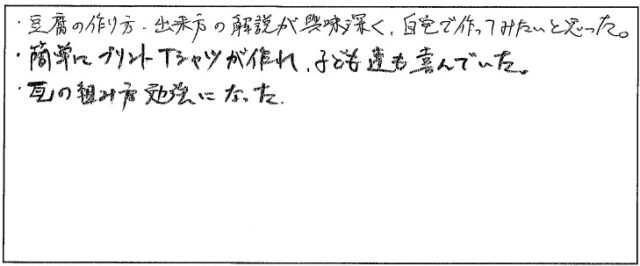 ・豆腐の作り方・出来方の解説が興味深く、自宅で作ってみたいと思った。
・簡単にプリントTシャツが作れ、子ども達も喜んでいた。
・瓦の組み方勉強になった.